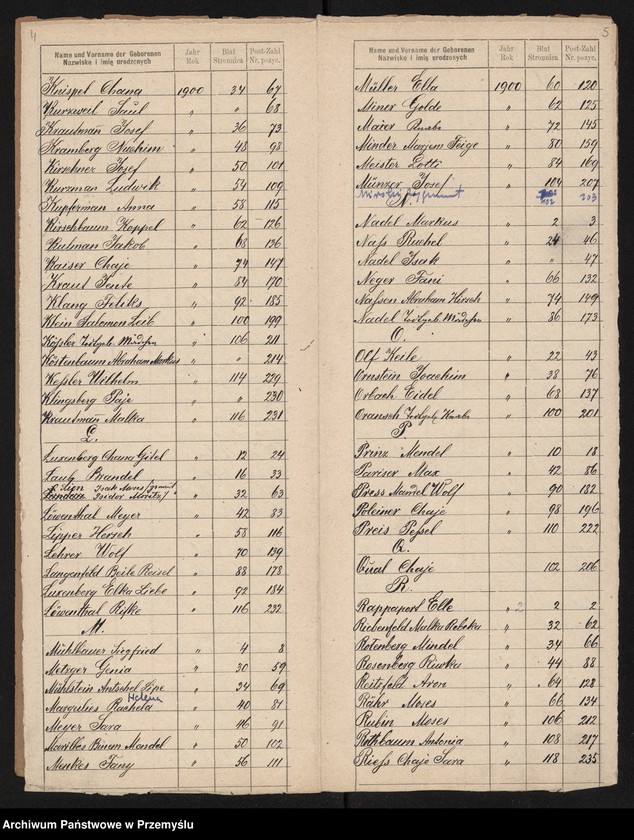 4
Name und Vorname der Geborenen Jahr Blat Post-Zahl
Nazwisko i imię urodzonych Rok Stronnica Nr. pozyc.
Knispel Chana 1900 34 67
Kurzweil Saul " " 68
Krautman Josef " 36 73
Kramberg Nuchim " 48 98
Kirschner Josef " 50 101
Kurzman Ludwik " 54 109
Kupferman Anna " 58 115
Kirschbaum Koppel " 62 126
Kulman Jakob " 68 136
Kaiser Chaje " 74 147
Kraut Jente " 84 170
Klang Feliks " 92 185
Klein Salomon Leib " 100 199
Kössler Todtgeb. Mädchen " 106 211
Köstenbaum Abraham Markus " " 214
Kessler Wilhelm " 114 229
Klingsberg Paje " " 230
Krautman Malka " 116 231
L.
Luxenberg Chana Gitel " 12 24
Laub Brandel " 16 33
Isidor Moritz " 32 63
Löwenthal Meyer " 42 83
Lipper Hersch " 58 116
Lehrer Wolf " 70 139
Langenfeld Beile Reisel " 88 178
Luxenberg Elka Liebe " 92 184
Löwenthal Rifke " 116 232
M.
Mühlbauer Siegfried " 4 8
Metzger Genia " 30 59
Mühlstein Antschel Lipe " 34 69
Helena
Margulies Rachela " 40 81
Meyer Sara " 46 91
Marilles Binem Mendel " 50 102
Menkes Fany " 56 111
5
Name und Vorname der Geborenen Jahr Blat Post-Zahl
Nazwisko i imię urodzonych Rok Stronnica Nr. pozyc.
Müller Ella 1900 60 120
Miner Golde " 62 125
Maier " 72 145
Minder Marjem Feige " 80 159
Meister Lotti " 84 169
Münzer Josef " 104 207
N.
Nadel Markus " 2 3
Nass Ruchel " 24 46
Nadel Isak " " 47
Neger Fani " 66 132
Nassen Abraham Hersch " 74 149
Nadel Todtgeb. Mädchen " 86 173
O.
Olf Keile " 22 43
Ornstein Joachim " 38 76
Orbach Eidel " 68 137
Oransch Todtgeb. Knabe " 100 201
P
Prinz Mendel " 10 18
Pariser Max " 42 86
Press Mandel Wolf " 90 182
Poleiner Chaje " 98 196
Preis Pessel " 110 222
Q.
Qual Chaje " 102 206
R.
Rappaport Elle " 2 2
Riebenfeld Malka Rebeka " 32 62
Rotenberg Mindel " 34 66
Rosenberg Riwka " 44 88
Reitzfeld Aron " 64 128
Rähr Moses " 66 134
Rubin Moses " 106 212
Rothbaum Antonia " 108 217
Riess Chaje Sara " 118 235
Archiwum Państwowe w Przemyślu